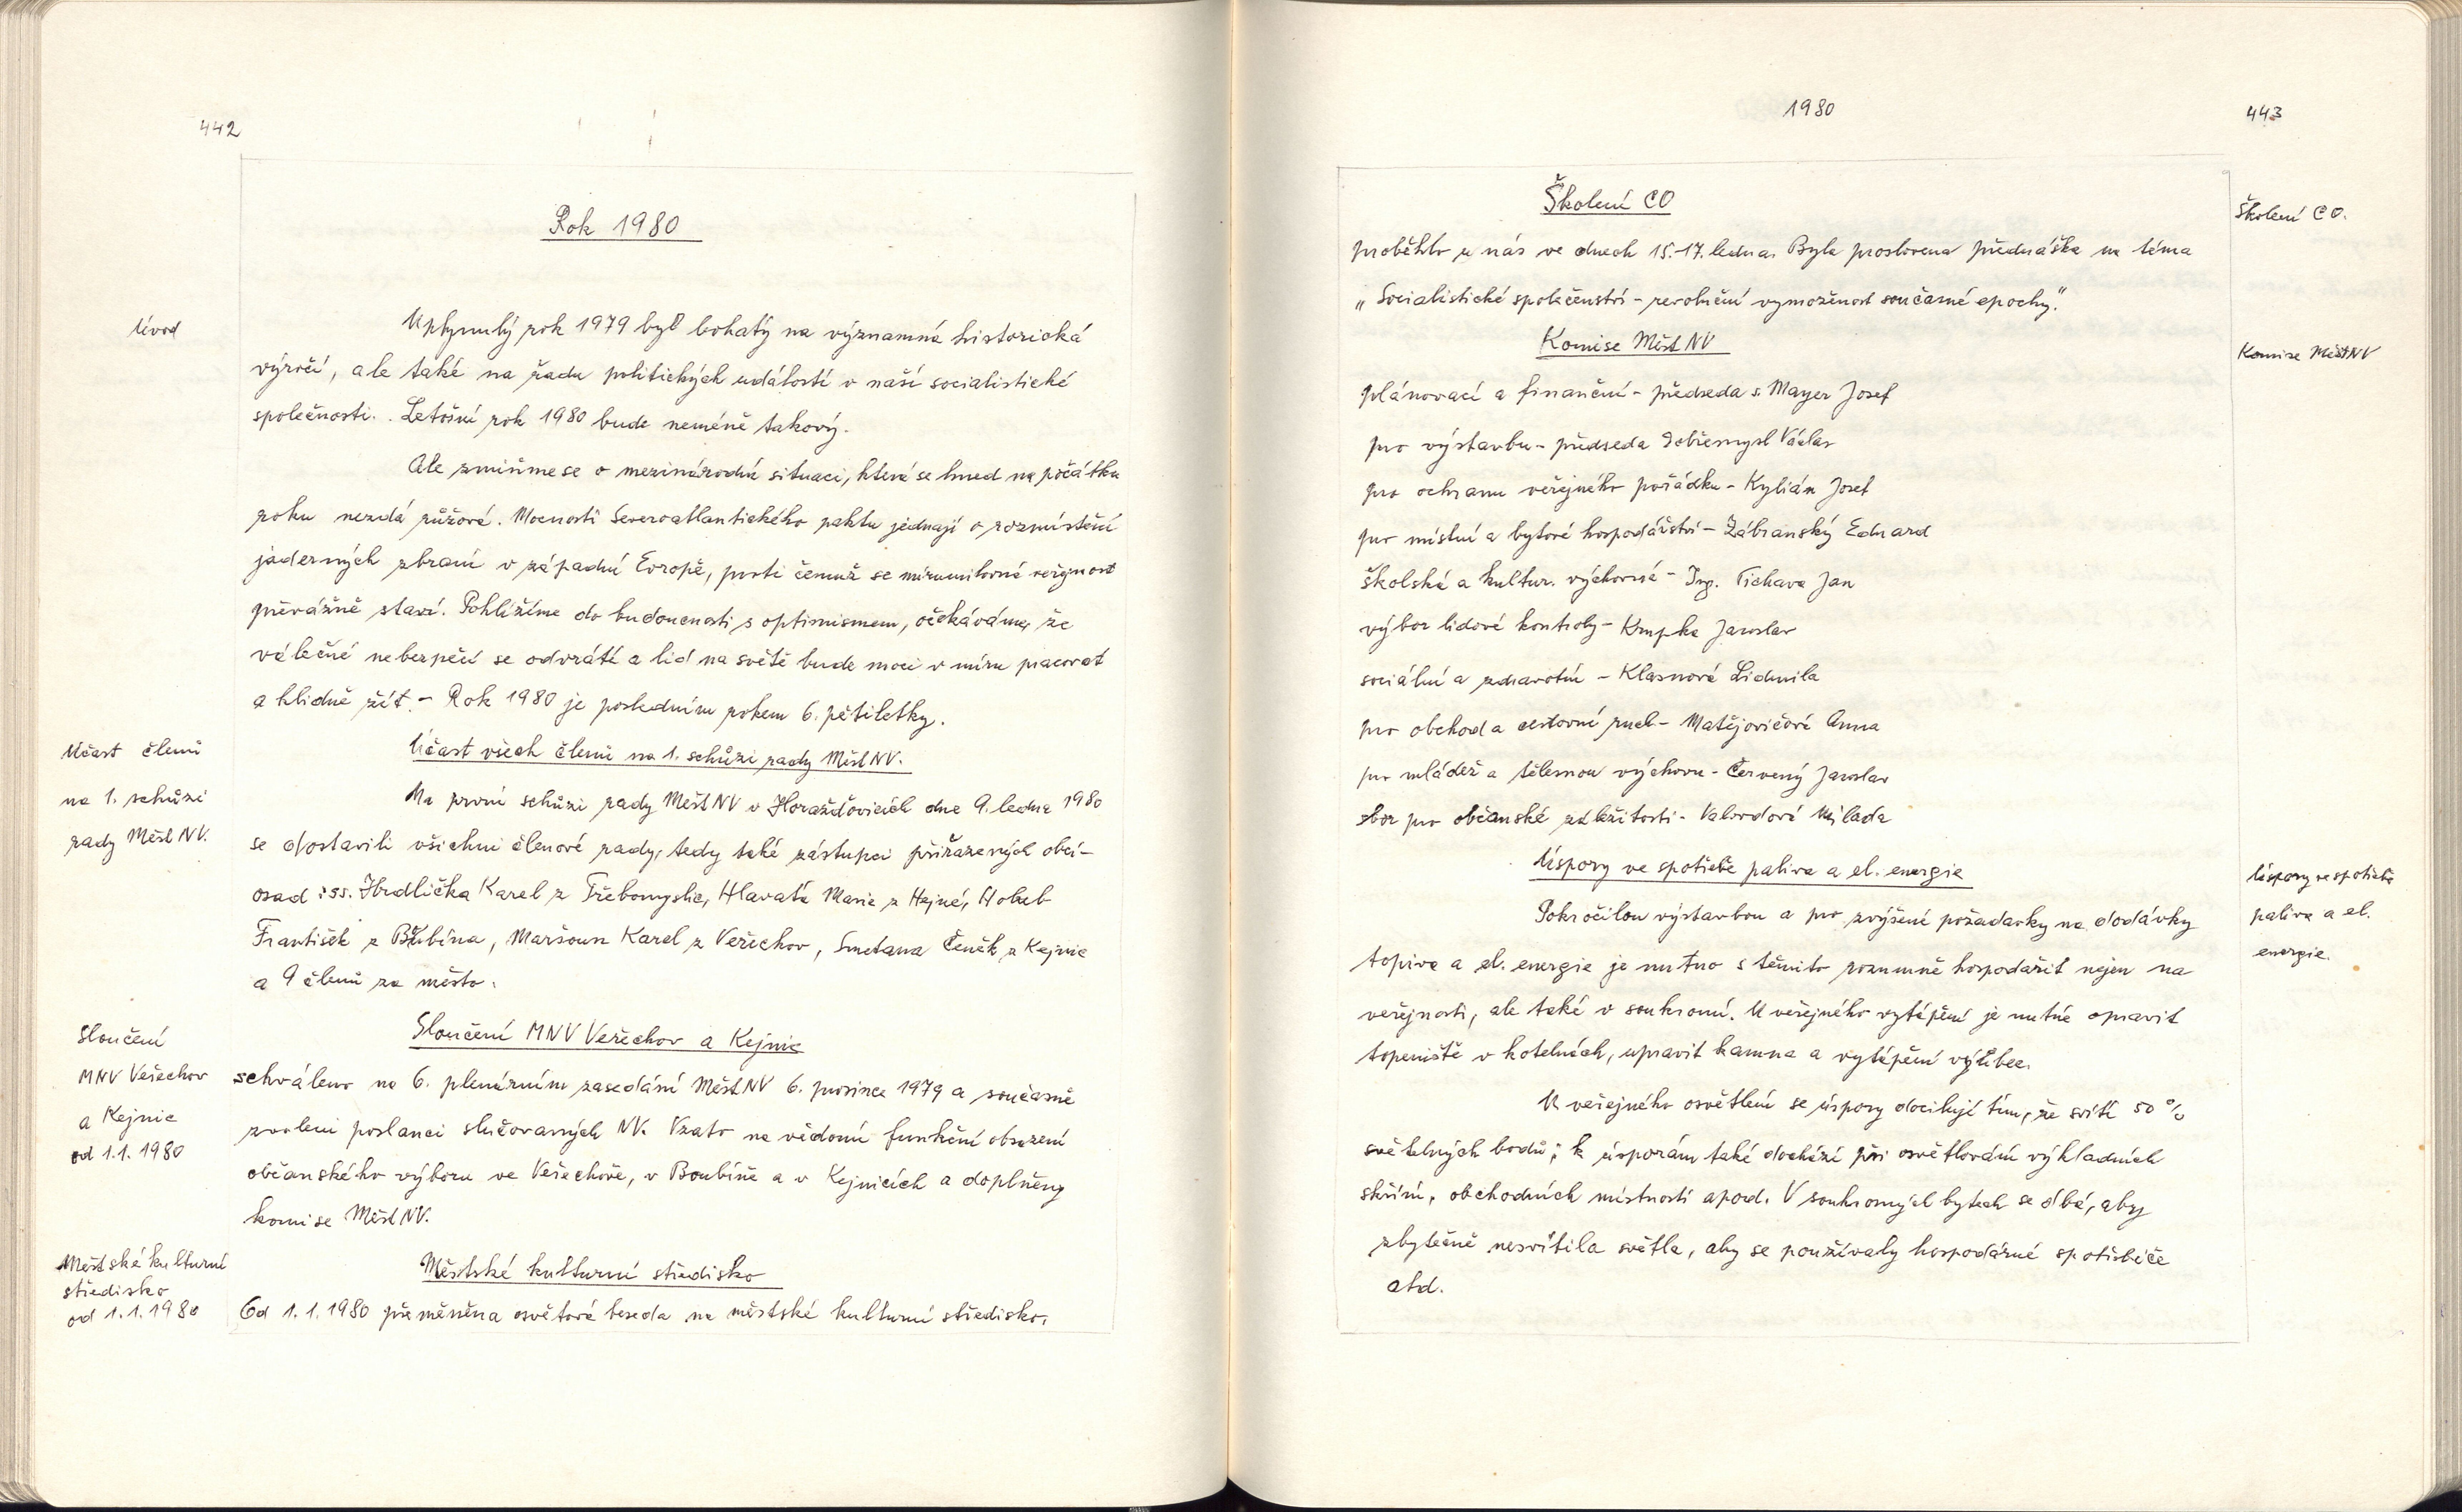 442
Rok 1980
Úvod
Uplynulý rok 1979 byl bohatý na významná historická
výročí, ale také na řadu politických událostí v naší socialistické
společnosti. Letošní rok 1980 bude neméně takový.
Ale zmiňme se o mezinárodní situaci, která se hned na počátku
roku nezdá růžová. Mocnosti Severoatlantického paktu jednají o rozmístění
jaderných zbraní v západní Evropě, proti čemuž se mírumilovná veřejnost
převážně staví. Pohlížíme do budoucnosti s optimismem, očekáváme, že
válečné nebezpečí se odvrátí a lid na světě bude moci v míru pracovat
a klidně žít. - Rok 1980 je posledním rokem 6. pětiletky.
Účast členů
na 1. schůzi
rady MěstNV.
Účast všech členů na 1. schůzi rady MěstNV.
Na první schůzi rady MěstNV v Horažďovicích dne 9. ledna 1980
se dostavili všichni členové rady, tedy také zástupci přiřazených obcí-
osad: ss. Hrdlička Karel z Třebomyslic, Hlavatá Marie z Hejné, Holub
František z Bubína, Maršoun Karel z Veřechov, Smetana Čeněk z Kejnic
a 9 členů za město.
Sloučení
MNV Veřechov
a Kejnic
od 1.1. 1980
Sloučení MNV Veřechov a Kejnic
schváleno na 6. plenárním zasedání MěstNV 6. prosince 1979 a současně
zvoleni poslanci slučovaných NV. Vzato na vědomí funkční obsazení
občanského výboru ve Veřechově, v Boubíně a v Kejnicích a doplněny
komise MěstNV.
Městské kulturní
středisko
od 1.1.1980
Městské kulturní středisko
Od 1.1.1980 přeměněna osvětová beseda na městské kulturní středisko.
1980
443
Školení CO
Školení CO.
proběhlo u nás ve dnech 15.-17. ledna. Byla proslovena přednáška na téma
„Socialistické společenství - revoluční vymoženost současné epochy."
Komise MěstNV
Komise MěstNV
plánovací a finanční - předseda s. Mayer Josef
pro výstavbu - předseda Dobřemysl Václav
pro ochranu veřejného pořádku - Kylián Josef
pro místní a bytové hospodářství - Zábranský Eduard
školská a kultur. výchovná - Ing. Tichava Jan
výbor lidové kontroly - Krupka Jaroslav
sociální a zdravotní - Klasnová Lidmila
pro obchod a cestovní ruch - Matějovičová Anna
pro mládež a tělesnou výchovu - Červený Jaroslav
sbor pro občanské záležitosti - Valvodová Milada
Úspory ve spotřebě paliva a el. energie
Úspory ve spotřebě
paliva a el.
energie.
Pokročilou výstavbou a pro zvýšené požadavky na dodávky
topiva a el. energie je nutno s těmito rozumně hospodařit nejen na
veřejnosti, ale také v soukromí. U veřejného vytápění je nutné opravit
topeniště v kotelnách, upravit kamna a vytápění vůbec.
U veřejného osvětlení se úspory docilují tím, že svítí 50 %
světelných bodů; k úsporám také dochází při osvětlování výkladních
skříní, obchodních místností apod. V soukromých bytech se dbá, aby
zbytečně nesvítila světla, aby se používaly hospodárné spotřebiče
atd.